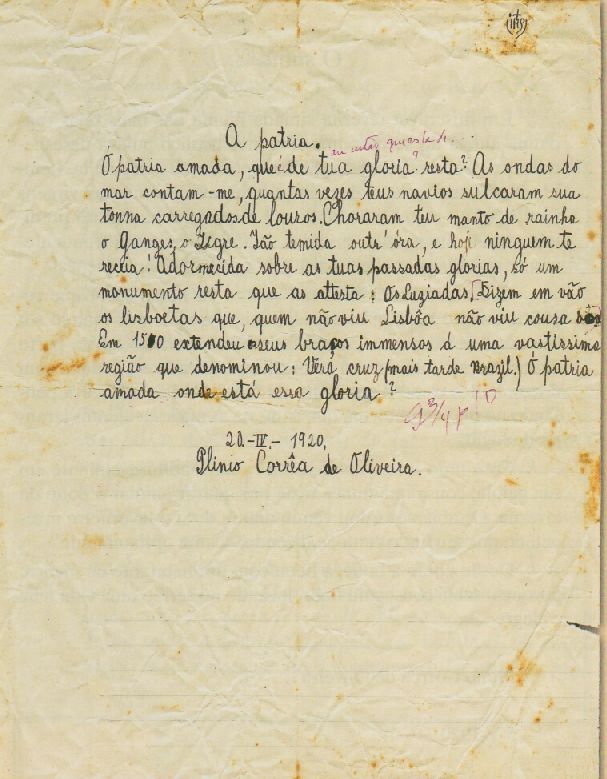 IHS
A patria.
Ó patria amada, que é de tua gloria resta? As ondas do
mar contam-me, quantas vezes teus navios sulcaram sua
tonna carregados de louros. Choraram teu manto de rainha
o Ganges, o Zegre. Tão temida outr'óra, e hoje ninguem te
receia! Adormecida sobre as tuas passadas glorias, só um
monumento resta que as attesta: Os Luziadas. Dizem em vão
os lisboetas que, quem não viu Lisbôa não viu cousa bôa
Em 1500 extendeu seus braços immensos á uma vastissima
região que denominou: Verá cruz (mais tarde Brazil.) Ó patria
amada onde está essa gloria?
20.-IV.-1920.
Plinio Corrêa de Oliveira.